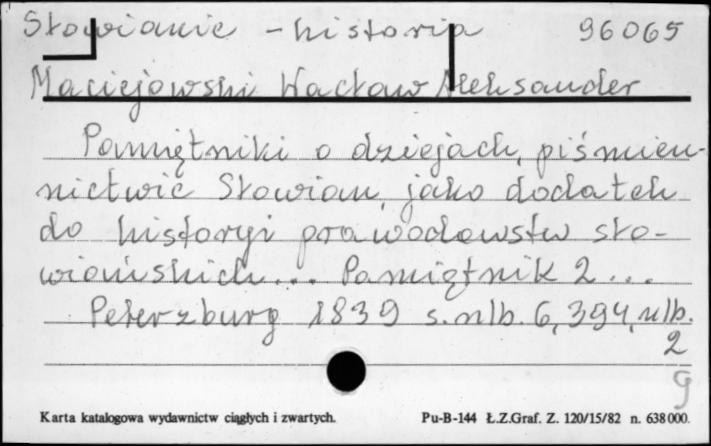 Słowianie - historia 96065
Maciejowski Wacław Aleksander
Pamiętniki o dziejach, piśmien-
nictwie Słowian, jako dodatek
do historyi prawodawstw sło-
wiańskich... Pamiętnik 2...
Peterzburg 1839 s. nlb. 6, 394, nlb.
2
g
Karta katalogowa wydawnictw ciągłych i zwartych. Pu-B-144 Ł.Z.Graf. Z. 120/15/82 n. 638000.